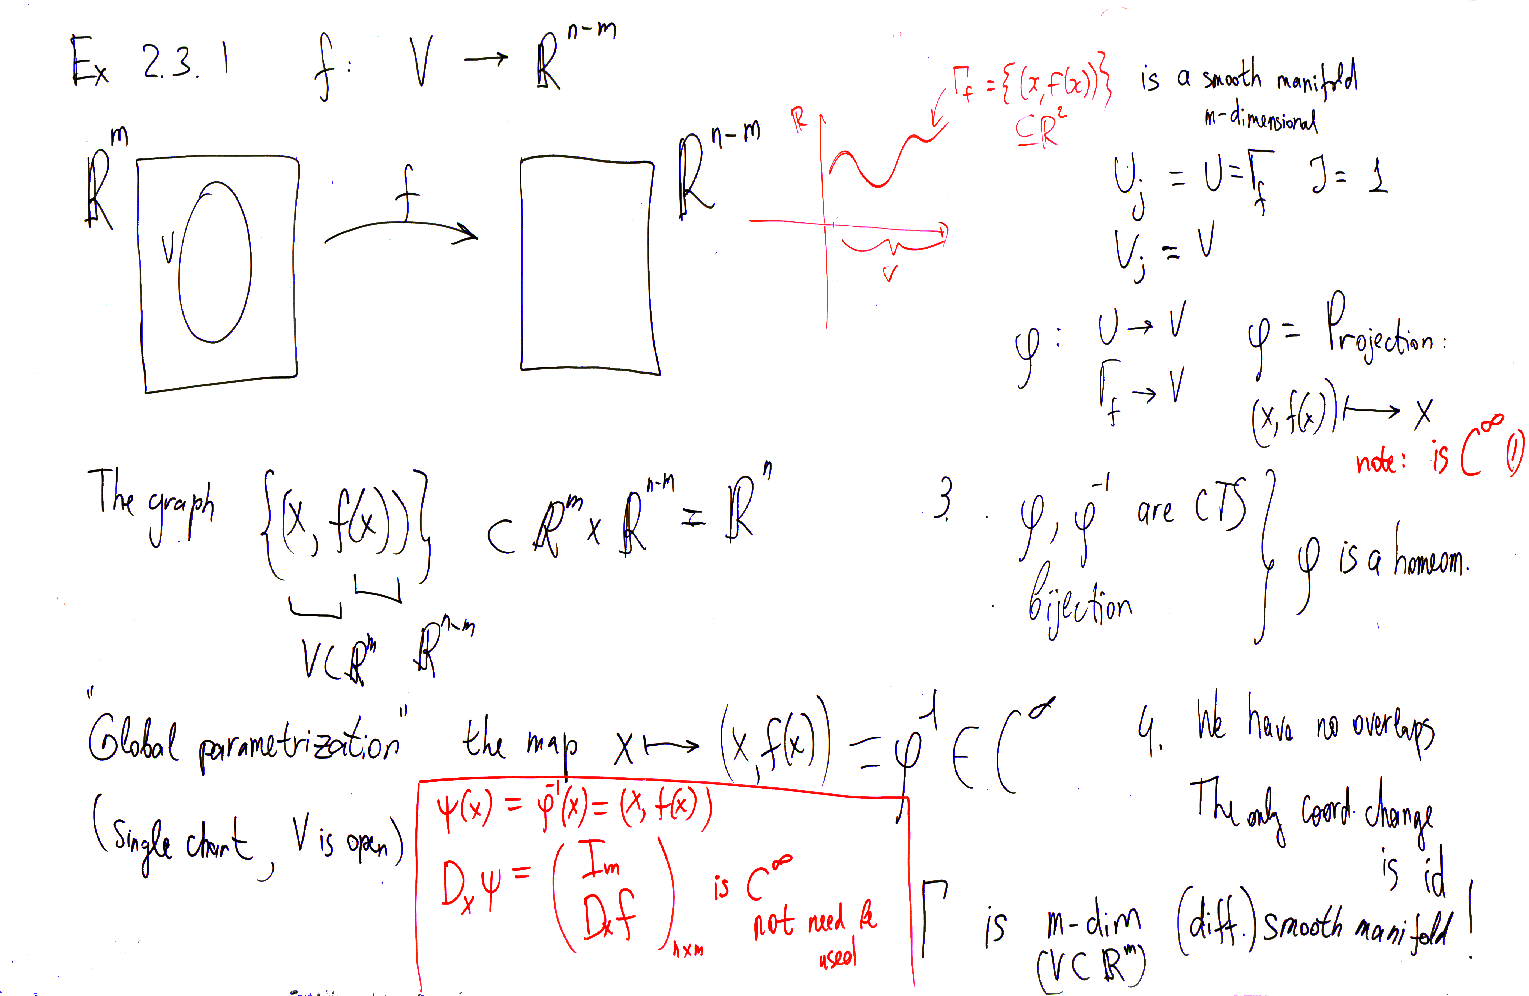 Ex 2.3.1 f: V → ℝ^{n-m}
ℝ^m
V
f
ℝ^{n-m}
ℝ
V
Γ_f = {(x, f(x))}
⊆ℝ²
is a smooth manifold
m-dimensional
U_j = U = Γ_f J = 1
V_j = V
φ: U → V
Γ_f → V
φ = Projection:
(x, f(x)) ↦ x
note: is C^∞ (!)
The graph {(x, f(x))} ⊂ ℝ^m × ℝ^{n-m} = ℝ^n
V⊂ℝ^m ℝ^{n-m}
3. φ, φ^{-1} are CTS
bijection
φ is a homeom.
"Global parametrization" the map x ↦ (x, f(x)) = φ^{-1} ∈ C^∞
(Single chart, V is open)
ψ(x) = φ^{-1}(x) = (x, f(x))
D_xψ = (I_m
D_xf)_{n×m} is C^∞
not need be
used
4. We have no overlaps
The only coord. change
is id
Γ is m-dim (diff.) smooth manifold!
(V⊂ℝ^m)